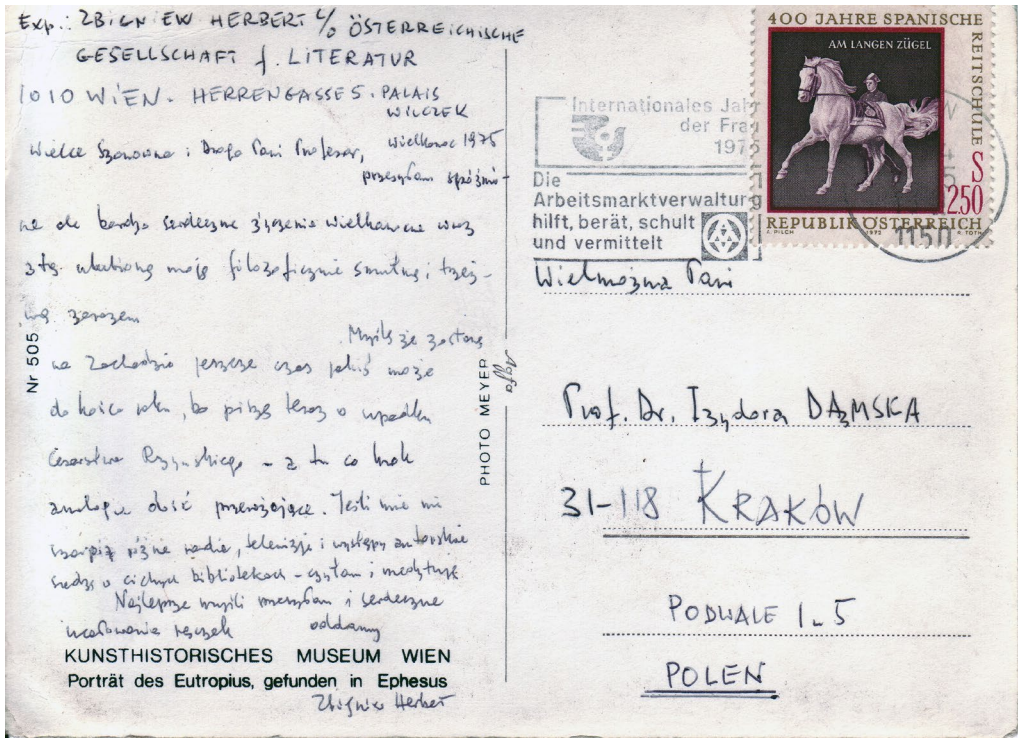 Exp.: ZBIGNIEW HERBERT c/o ÖSTERREICHISCHE
GESELLSCHAFT f. LITERATUR
1010 WIEN. HERRENGASSE 5. PALAIS
WILCZEK
Wielkanoc 1975
Wielce Szanowna i Droga Pani Profesor,
przesyłam spóźnio-
ne ale bardzo serdeczne życzenia Wielkanocne wraz
z tą ulubioną moją filozoficznie smutną i trzeź-
wą zarazem
Myślę że zostanę
na Zachodzie jeszcze czas jakiś może
do końca roku, bo piszę teraz o upadku
Cesarstwa Rzymskiego – a tu co krok
analogie dość przerażające. Jeśli mnie nie
różne radia, telewizje i występy autorskie
siedzę w cichych bibliotekach – czytam i medytuję
Najlepsze myśli przesyłam i serdeczne
ucałowania rączek
oddany
Zbigniew Herbert
KUNSTHISTORISCHES MUSEUM WIEN
Porträt des Eutropius, gefunden in Ephesus
Nr 505
PHOTO MEYER
Agfa
Internationales Jahr
der Frau
1975
Die
Arbeitsmarktverwaltung
hilft, berät, schult
und vermittelt
400 JAHRE SPANISCHE
REITSCHULE
AM LANGEN ZÜGEL
S
2.50
REPUBLIK ÖSTERREICH
PILCH 1972 R. TOTH
1150
Wielmożna Pani
Prof. Dr. Izydora DĄMSKA
31-118 KRAKÓW
PODWALE 1 5
POLEN